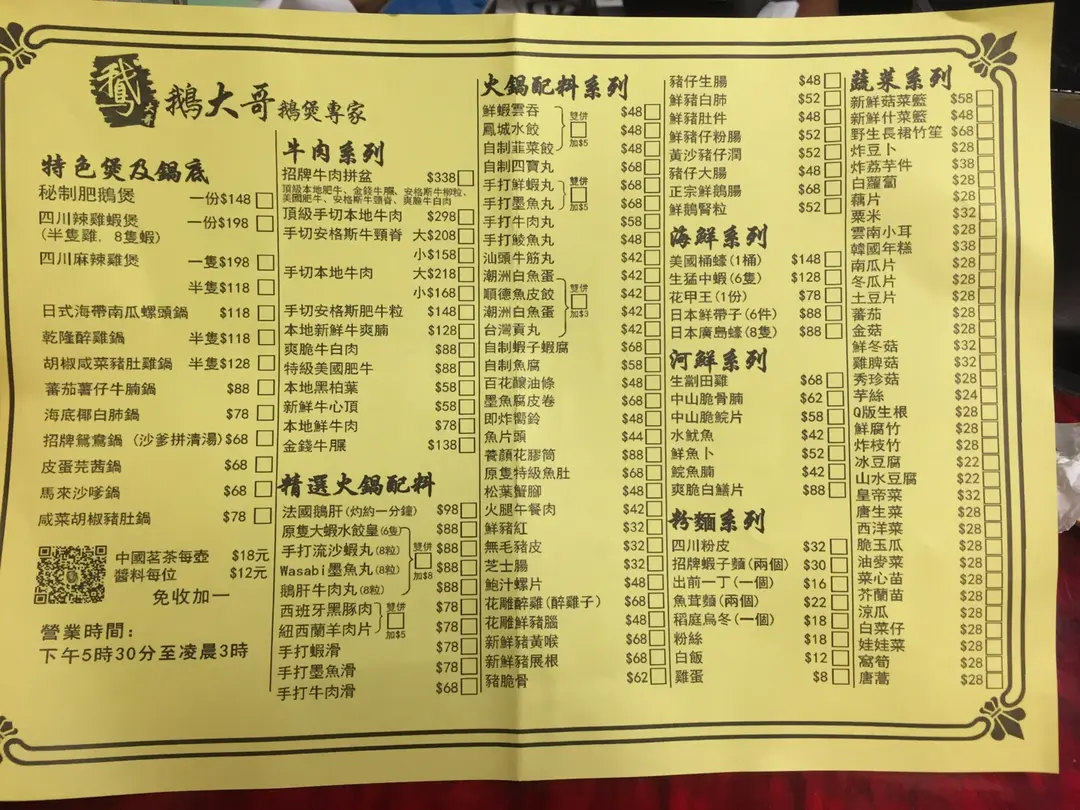 鵝大哥 鵝煲專家
特色煲及鍋底
秘制肥鵝煲 一份$148
四川辣雞蝦煲 一份$198
(半隻雞, 8隻蝦)
四川麻辣雞煲 一隻$198
半隻$118
日式海帶南瓜螺頭鍋 $118
乾隆醉雞鍋 半隻$118
胡椒咸菜豬肚雞鍋 半隻$128
蕃茄薯仔牛腩鍋 $88
海底椰白肺鍋 $78
招牌鴛鴦鍋 (沙爹拼清湯) $68
皮蛋芫茜鍋 $68
馬來沙嗲鍋 $68
咸菜胡椒豬肚鍋 $78
中國茗茶每壺 $18元
醬料每位 $12元
免收加一
營業時間:
下午5時30分至凌晨3時
牛肉系列
招牌牛肉拼盆 $338
頂級本地肥牛、金錢牛𦟌、安格斯牛柳粒、
美國肥牛、安格斯牛頸脊、爽脆牛白肉
頂級手切本地牛肉 $298
手切安格斯牛頸脊 大$208
小$158
手切本地牛肉 大$218
小$168
手切安格斯肥牛粒 $148
本地新鮮牛爽腩 $128
爽脆牛白肉 $88
特級美國肥牛 $88
本地黑柏葉 $58
新鮮牛心頂 $58
本地鮮牛肉 $78
金錢牛𦟌 $138
精選火鍋配料
法國鵝肝 (灼約一分鐘) $98
原隻大蝦水餃皇 (6隻) $88
手打流沙蝦丸 (8粒) $88
Wasabi墨魚丸 (8粒) $88
鵝肝牛肉丸 (8粒) $88
雙併
加$8
西班牙黑豚肉 $78
紐西蘭羊肉片 $78
雙併
加$5
手打蝦滑 $78
手打墨魚滑 $78
手打牛肉滑 $68
火鍋配料系列
鮮蝦雲吞 $48
鳳城水餃 $48
自制韮菜餃 $48
雙併
加$5
自制四寶丸 $68
手打鮮蝦丸 $68
手打墨魚丸 $58
雙併
加$5
手打牛肉丸 $58
手打鯪魚丸 $48
汕頭牛筋丸 $42
潮洲白魚蛋 $42
順德魚皮餃 $42
潮洲白魚蛋 $42
台灣貢丸 $42
雙併
加$3
自制蝦子蝦腐 $68
自制魚腐 $58
百花釀油條 $48
墨魚腐皮卷 $68
即炸響鈴 $48
魚片頭 $44
養顏花膠筒 $88
原隻特級魚肚 $68
松葉蟹腳 $48
火腿午餐肉 $42
鮮豬紅 $32
無毛豬皮 $32
芝士腸 $32
鮑汁螺片 $48
花雕醉雞 (醉雞子) $68
花雕鮮豬腦 $48
新鮮豬黃喉 $68
新鮮豬展根 $68
豬脆骨 $62
豬仔生腸 $48
鮮豬白肺 $52
鮮豬肚件 $48
鮮豬仔粉腸 $52
黃沙豬仔潤 $52
豬仔大腸 $48
正宗鮮鵝腸 $68
鮮鵝腎粒 $52
海鮮系列
美國桶蠔 (1桶) $148
生猛中蝦 (6隻) $128
花甲王 (1份) $78
日本鮮帶子 (6件) $88
日本廣島蠔 (8隻) $88
河鮮系列
生劏田雞 $68
中山脆骨腩 $62
中山脆鯇片 $58
水魷魚 $42
鮮魚卜 $52
鯇魚腩 $42
爽脆白鱔片 $88
粉麵系列
四川粉皮 $32
招牌蝦子麵 (兩個) $30
出前一丁 (一個) $16
魚茸麵 (兩個) $22
稻庭烏冬 (一個) $18
粉絲 $18
白飯 $12
雞蛋 $8
蔬菜系列
新鮮菇菜籃 $58
新鮮什菜籃 $48
野生長裙竹笙 $68
炸豆卜 $28
炸荔芋件 $38
白蘿蔔 $28
藕片 $28
粟米 $32
雲南小耳 $28
韓國年糕 $38
南瓜片 $28
冬瓜片 $28
土豆片 $28
蕃茄 $28
金菇 $28
鮮冬菇 $32
雞脾菇 $32
秀珍菇 $28
芋絲 $24
Q版生根 $28
鮮腐竹 $28
炸枝竹 $28
冰豆腐 $22
山水豆腐 $22
皇帝菜 $32
唐生菜 $28
西洋菜 $28
脆玉瓜 $28
油麥菜 $28
菜心苗 $28
芥蘭苗 $28
涼瓜 $28
白菜仔 $28
娃娃菜 $28
窩筍 $28
唐蒿 $28